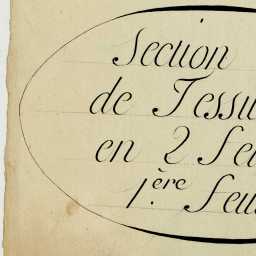 Section
de Tessu
en 2 feu
1.ère feui